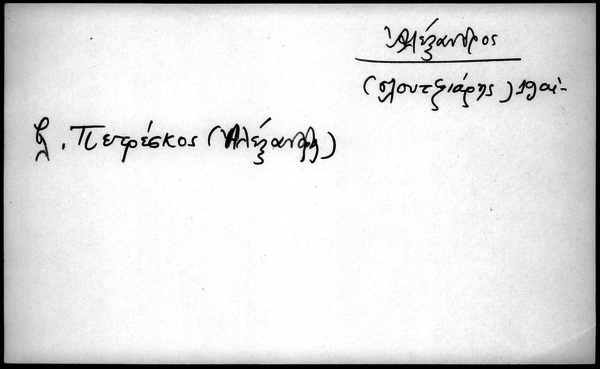 Ἀλέξανδρος
(σλουτζιάρης) 19 αἰ-
βλ. Πετρέσκος (Ἀλέξανδρ)